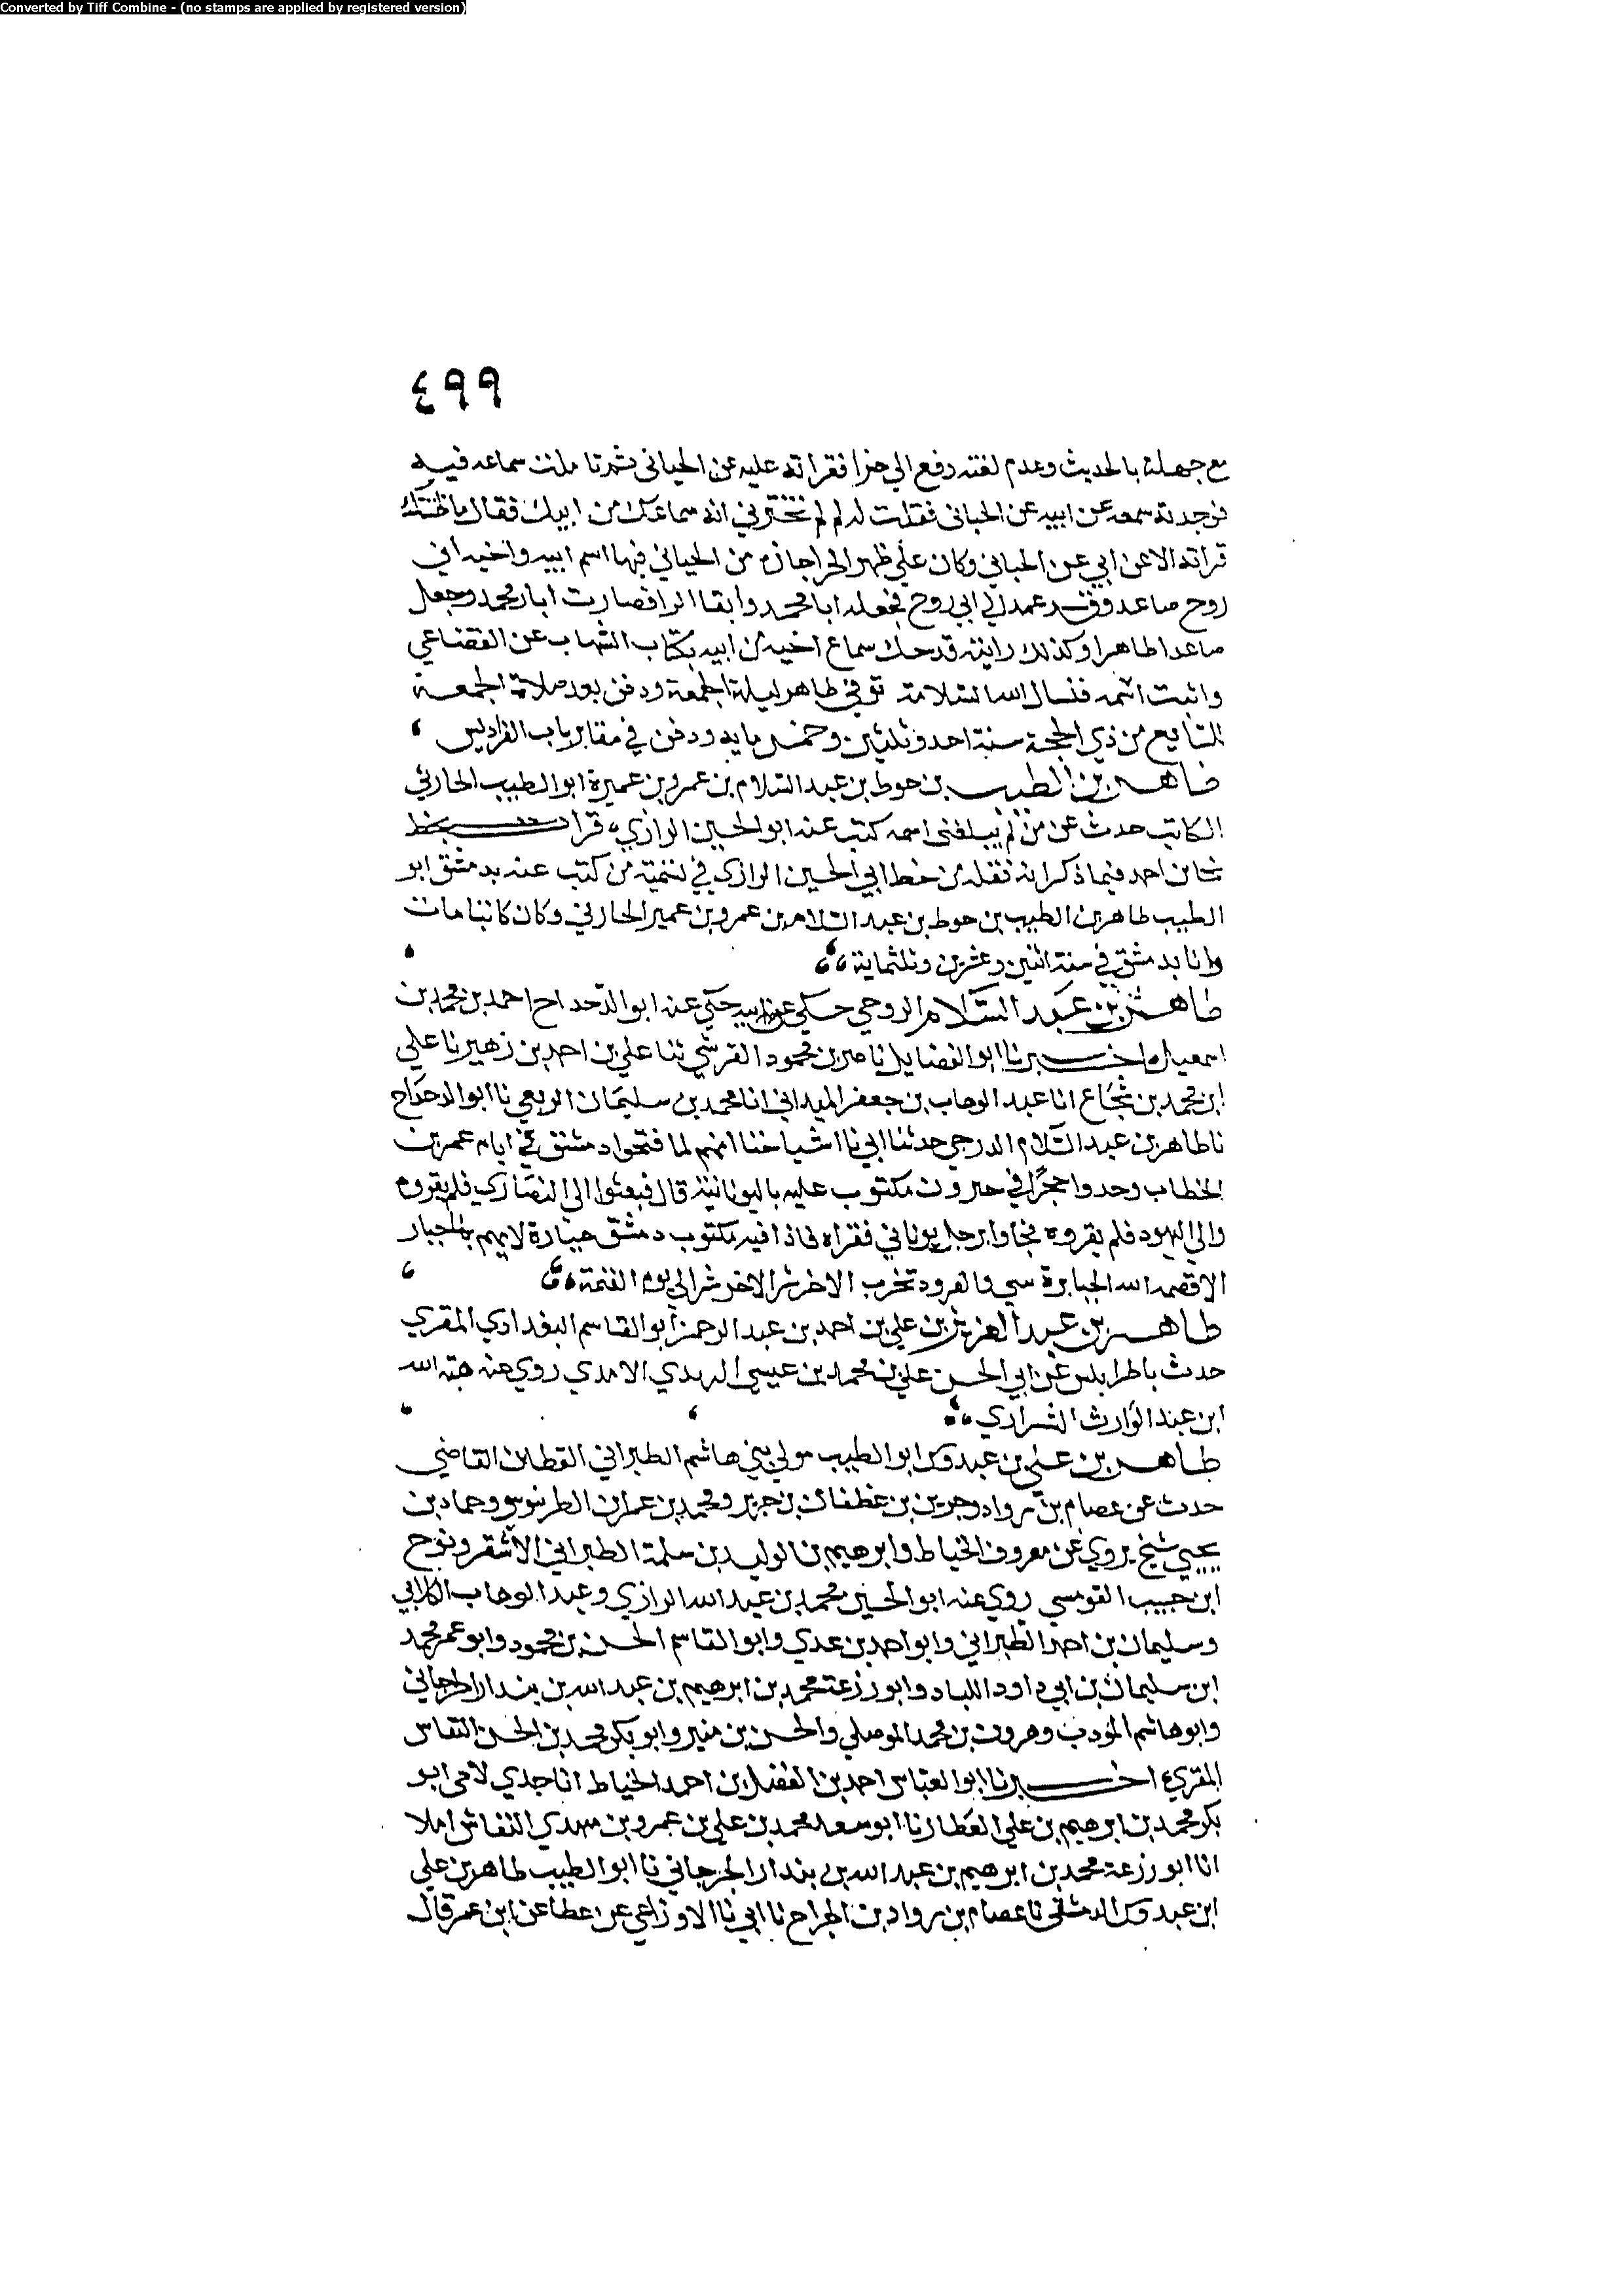 Converted by Tiff Combine - (no stamps are applied by registered version)
٤٩٩
مع جهله بالحديث وعدم دفع الي جزا فقراته عليه عن الحياني ثم تاملت سماعه فيه
فوجدته سمعه عن ابيه عن الحياني فقلت له لم لم تخبرني انه سماعك من ابيك فقال ما ظننتك
قراته الا عن ابي عن الحياني وكان علي ظهر الجز اجازه من الحياني فيها اسم ابيه واخيه ابي
روح صاعد وقد عمد الي ابي روح فجعله ابا محمد وابقا الرا فصارت ابار محمد وجعل
صاعدا طاهرا وكذلك رايته قد حك سماع اخيه من ابيه بكتاب الشهاب عن القضاعي
واثبت اسمه فنسال الله السلامة توفي طاهر ليلة الجمعة ودفن بعد صلاة الجمعة
السابع من ذي الحجة سنة احد وثلثين وخمس مايه ودفن في مقابر باب الفراديس
طاهر بن الطيب بن حوط بن عبد السلام بن عمرو بن عميرة ابو الطيب الحارثي
الكاتب حدث عن من لم يبلغني اسمه كتب عنه ابو الحسين الرازي قرات بخط
نجا بن احمد فيما ذكر انه نقله من خط ابي الحسين الرازي في تسمية من كتب عنه بدمشق ابو
الطيب طاهر بن الطيب بن حوط بن عبد السلام بن عمرو بن عمير الحارثي وكان كاتبا مات
وانا بدمشق في سنة اثنين وعشرين وثلثماية
طاهر بن عبد السلام حكي عن ابيه حكي عنه ابو الدحداح احمد بن محمد بن
اسمعيل اخبرنا ابو الفضايل ناصر بن محمود القرشي ثنا علي بن احمد بن زهير نا علي
ابن محمد بن شجاع انا عبد الوهاب بن جعفر الميداني انا محمد بن سليمان الربعي نا ابو الدحداح
نا طاهر بن عبد السلام الدرجي حدثنا ابي نا اشياخنا انهم لما فتحوا دمشق في ايام عمر بن
الخطاب وجدوا حجرا في جيرون مكتوب عليه باليونانية قال فبعثوا الي النصاري فلم يقروه
والي اليهود فلم يقروه فجاوا برجل يوناني فقراه فاذا فيه مكتوب دمشق جبارة لا يهم بها جبار
الا قصمه الله الجبابرة تبني والقرود تخرب الاخر شر الاخر شر الي يوم القيمة
طاهر بن عبد العزيز بن علي بن احمد بن عبد الرحمن ابو القاسم البغدادي المقري
حدث باطرابلس عن ابي الحسن علي بن محمد بن عيسي الامدي روي عنه هبة الله
ابن عبد الوارث الشيرازي
طاهر بن علي بن عبدوس ابو الطيب مولي بني هاشم الطبراني القطان القاضي
حدث عن عصام بن رواد وجرين بن غطفان بن جرير ومحمد بن عمران الطرسوسي وحماد بن
يحيي شيخ يروي عن معروف الخياط وابرهيم بن الوليد بن سلمة الطبراني الاشقر ونوح
ابن حبيب القومسي روي عنه ابو الحسين محمد بن عبد الله الرازي وعبد الوهاب الكلابي
وسليمان بن احمد الطبراني وابو احمد بن عدي وابو القاسم الحسن بن محمود وابو عمر محمد
ابن سليمان بن ابي داود اللباد وابو زرعة محمد بن ابرهيم بن عبد الله بن بندار الجرجاني
وابو هاشم المؤدب وهرون بن محمد الموصلي والحسن بن منير وابو بكر محمد بن الحسن النقاش
المقري اخبرنا ابو العباس احمد بن الفضل بن احمد الخياط انا جدي لامي ابو
بكر محمد بن ابرهيم بن علي العطار نا ابو سعد محمد بن علي بن عمرو بن مهدي النقاش املا
انا ابو زرعة محمد بن ابرهيم بن عبد الله بن بندار الجرجاني نا ابو الطيب طاهر بن علي
ابن عبدوس الدمشقي نا عصام بن رواد بن الجراح نا ابي نا الاوزاعي عن عطا عن ابن عمر قال